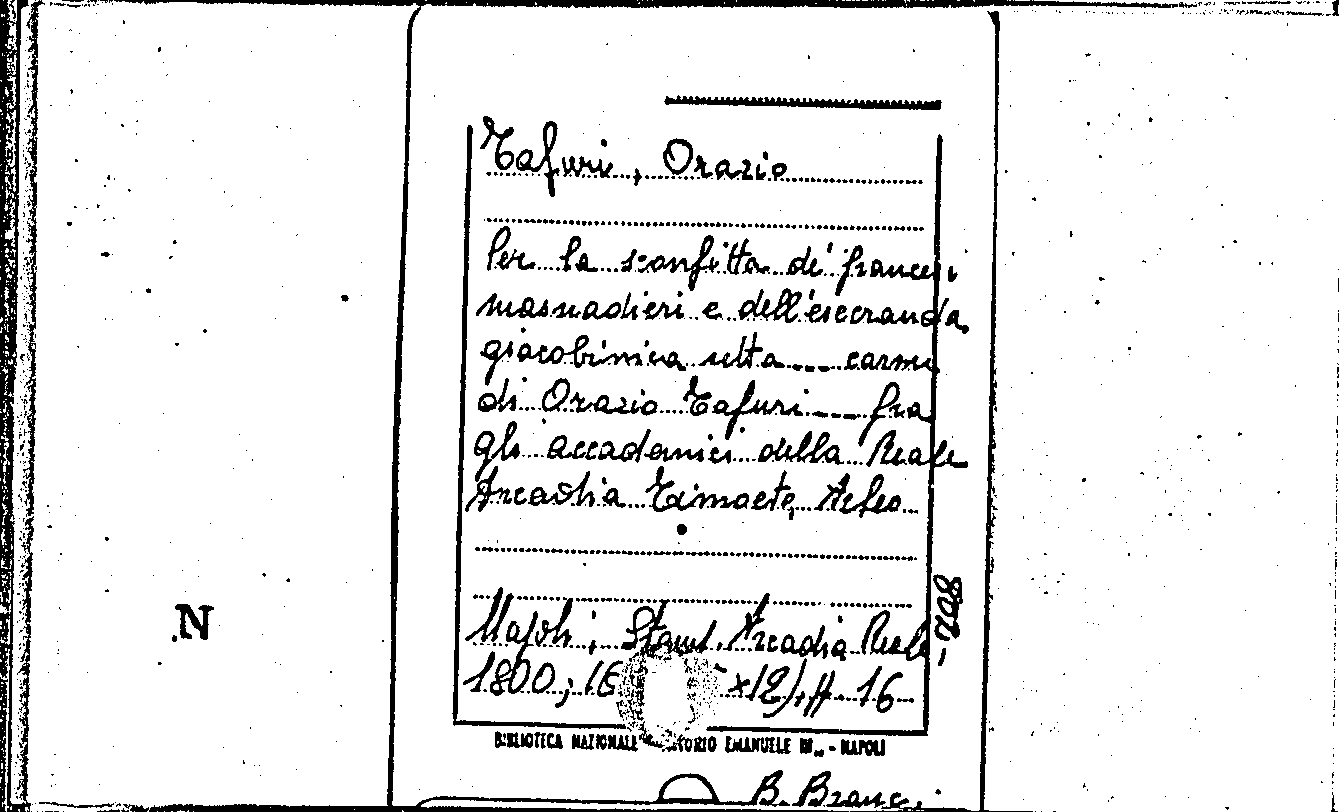 Tafuri, Orazio
Per la sconfitta de' francesi
masnadieri e dell'esecranda
giacobinica setta --- carmi
di Orazio Tafuri --- fra
gli accademici della Reale
Arcadia Timaete Acheo
Napoli; Stamp. Arcadia Reale
1800; 16 x12), 16
802-
N
BIBLIOTECA NAZIONALE EMANUELE III - NAPOLI
B. Brancc.